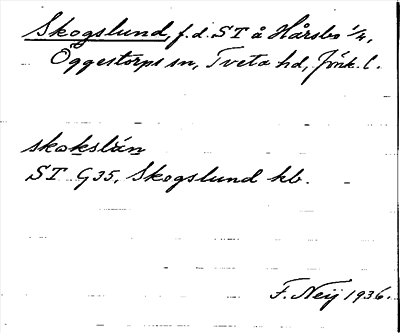 Skogslund, f.d. ST å Hårsbo 1/4,
Öggestorps sn, Tveta hd, Jönk. l.
skokslún
ST G35, Skogslund kb.
F. Neij 1936.